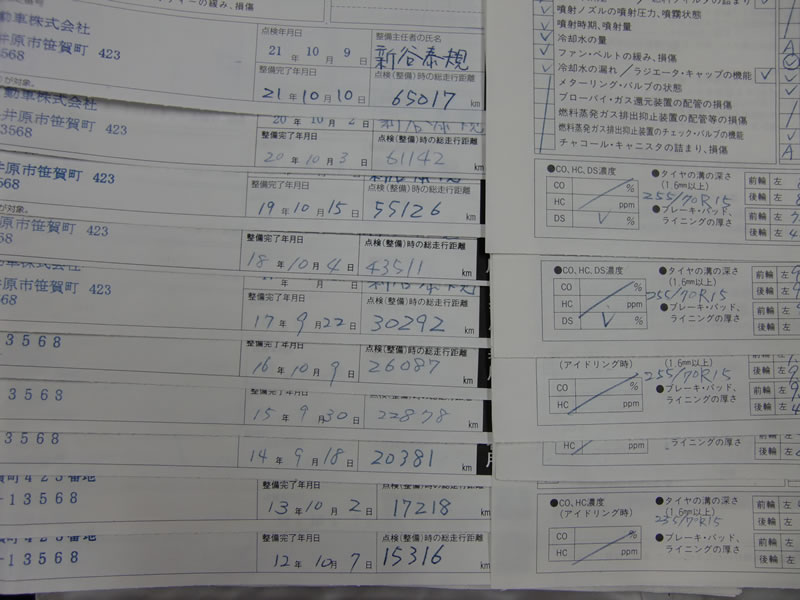 ィーの緩み、損傷
動車株式会社
井原市笹賀町 423
3568
点検年月日
21 年 10 月 9 日
整備主任者の氏名
新谷泰規
整備完了年月日
21 年 10 月 10 日
点検(整備)時の総走行距離
65017 km
が対象。
動車株式会社
井原市笹賀町 423
3568
20 年 10 月 3 日
点検(整備)時の総走行距離
61142 km
井原市笹賀町 423
3568
整備完了年月日
19 年 10 月 15 日
点検(整備)時の総走行距離
55126 km
が対象。
井原市笹賀町 423
3568
整備完了年月日
18 年 10 月 4 日
点検(整備)時の総走行距離
43511 km
動車株式会社
井原市笹賀町 423
整備完了年月日
17 年 9 月 22 日
点検(整備)時の総走行距離
30292 km
13568
整備完了年月日
16 年 10 月 9 日
点検(整備)時の総走行距離
26087 km
3568
整備完了年月日
15 年 9 月 30 日
22878 km
3568
14 年 9 月 18 日
20381 km
賀町423番地
-13568
整備完了年月日
13 年 10 月 2 日
点検(整備)時の総走行距離
17218 km
-13568
整備完了年月日
12 年 10 月 7 日
点検(整備)時の総走行距離
15316 km
噴射ノズルの噴射圧力、噴霧状態
噴射時期、噴射量
冷却水の量
ファン・ベルトの緩み、損傷
冷却水の漏れ/ラジエータ・キャップの機能
メターリング・バルブの状態
ブローバイ・ガス還元装置の配管の損傷
燃料蒸発ガス排出抑止装置の配管等の損傷
燃料蒸発ガス排出抑止装置のチェック・バルブの機能
チャコール・キャニスタの詰まり、損傷
●CO, HC, DS濃度
CO %
HC ppm
DS %
●タイヤの溝の深さ
(1.6mm以上)
255/70R15
●ブレーキ・パッド、
ライニングの厚さ
前輪 左
後輪 左
前輪 左
後輪 左
●CO, HC, DS濃度
CO %
HC ppm
DS %
●タイヤの溝の深さ
(1.6mm以上)
255/70R15
●ブレーキ・パッド、
ライニングの厚さ
前輪 左
後輪 左
前輪 左
後輪 左
(アイドリング時)
CO %
HC ppm
(1.6mm以上)
255/70R15
●ブレーキ・パッド、
ライニングの厚さ
後輪 左
前輪 左
後輪 左
HC ppm
ライニングの厚さ
後輪 左
●CO, HC濃度
(アイドリング時)
CO %
HC ppm
●タイヤの溝の深さ
(1.6mm以上)
235/70R15
●ブレーキ・パッド、
ライニングの厚さ
前輪 左
後輪 左
前輪 左
後輪 左